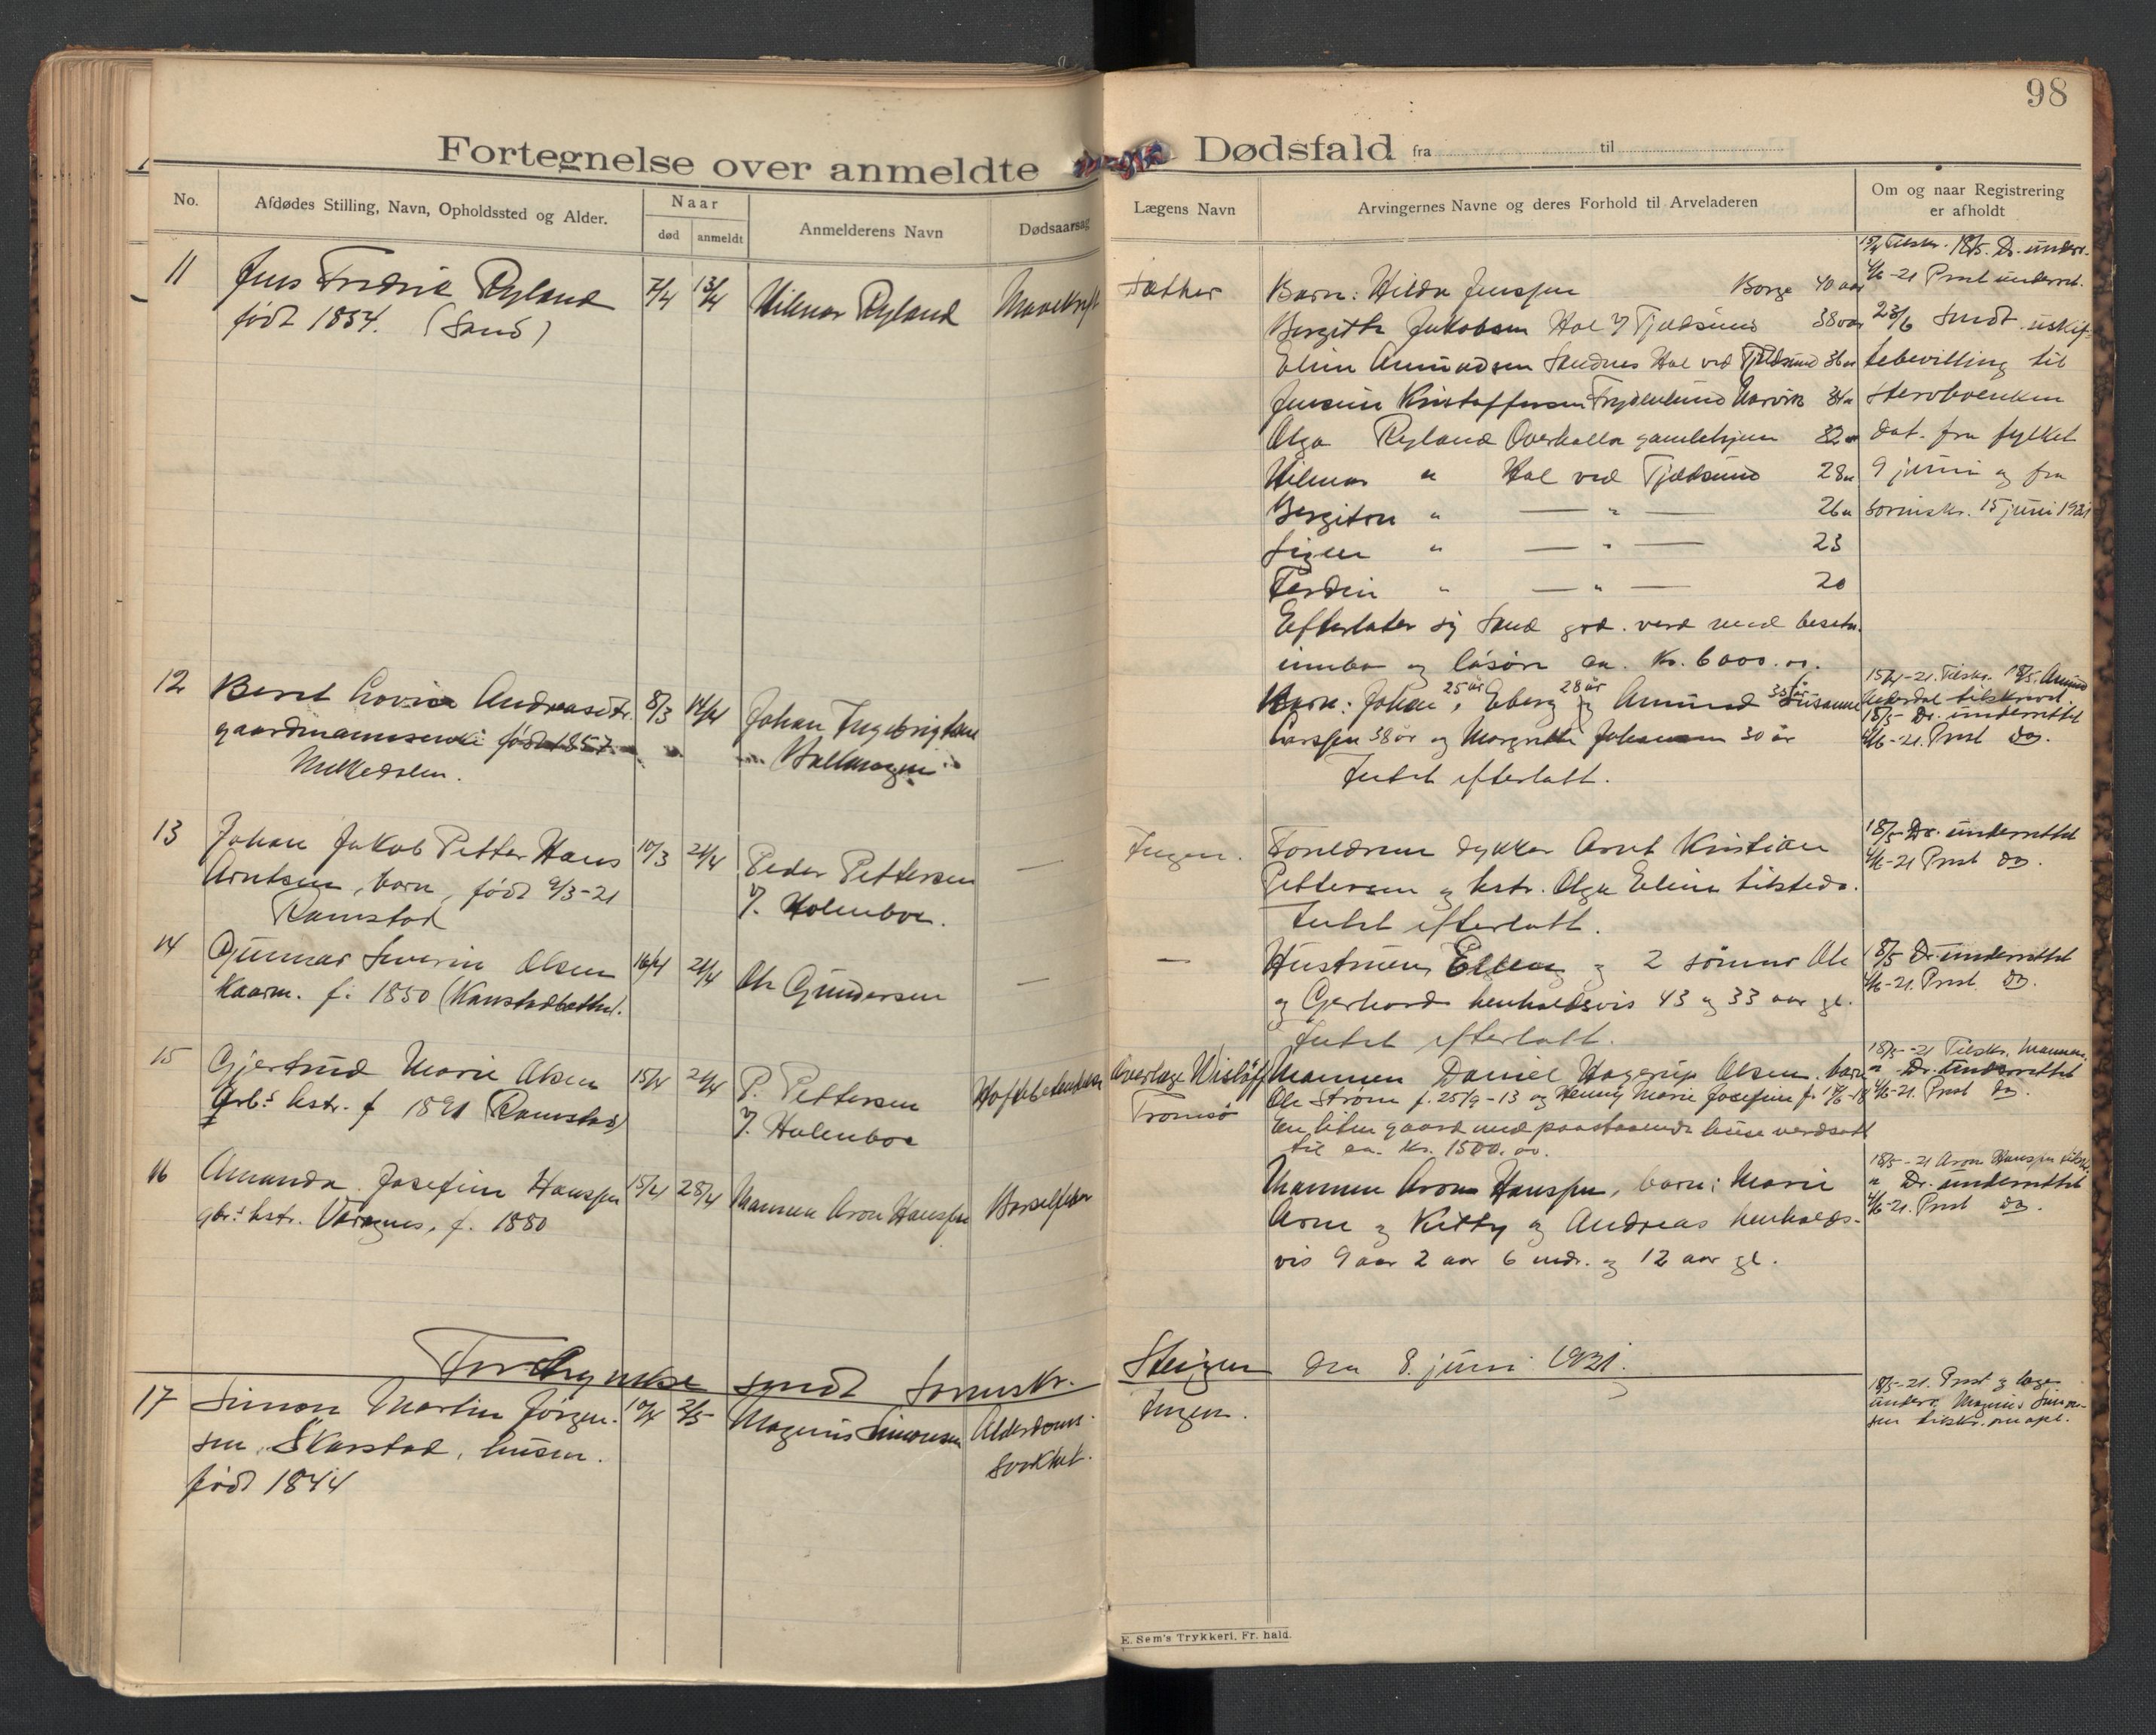 98
Fortegnelse over anmeldte Dødsfald fra til
No.
Afdødes Stilling, Navn, Opholdssted og Alder.
Naar
død
anmeldt
Anmelderens Navn
Dødsaarsag
Lægens Navn
Arvingernes Navne og deres Forhold til Arveladeren
Om og naar Registrering
er afholdt
11
Jens Fredrik Ryland
født 1854. (Sand)
7/4
13/4
Hilmar Ryland
Mavekræft
Sæther
Barn: Hilda Jenssen Borge 40 aar
Bergithe Jakobsen Hol i Tjeldsund 38 aar
Eline Amundsen Sandnes Hol ved Tjeldsund 36 a
Jensine Kristoffersen Frydenlund Narvik 34 a
Olga Ryland Overhalla gamlehjem 32 a
Hilmar " Hol ved Tjeldsund 28 a
Bergiton " — " — 26 a
Sigen " — " — 23
Ferdin " — " — 20
Efterlater sig Sand grd. verd med besetn.
innbo og løsøre ca. kr. 6000.00.
15/4 Tilskr. 18/5. Dr. underr.
4/6-21 Prest underret.
23/6 sendt uskif-
tebevilling til
sterboenken
dat. fra fylket
9 juni og fra
sorenskr. 15 juni 1921
12
Beret Lovise Andreasdtr.
gaardmannsenke født 1857
Melkedalen.
8/3
14/4
Johan Ingebrigtsen
Ballangen
Barn: Johan 25 år, Eberg 28 år og Amund 35 år Susanne
Larssen 38 år og Margrethe Johansen 30 år
Intet efterlatt.
15/4-21. Tilskr. 18/5. Amund
18/5- Dr. underrettet
4/6-21. Prest do.
13
Johan Jakob Petter Hans
Arntsen, barn, født 9/3-21
Ramstad
10/3
21/4
Peder Pettersen
f. Holenboe.
—
Ingen.
Foreldrene dykker Arnt Kristian
Pettersen og hstr. Olga Eline tilsteds.
Intet efterlatt.
18/5- Dr. underrettet
4/6-21 Prest do.
14
Gunnar Severin Olsen
Kaarm. f. 1850 (Kanstadbotten).
16/4
21/4
Ole Gundersen
—
—
Hustruen Ellen og 2 sønner Ole
og Gerhard henholdsvis 43 og 33 aar gl.
Intet efterlatt.
18/5 Dr. underrettet
4/6-21. Prest do.
15
Gjertrud Marie Olsen
grb.s hstr. f 1891 (Ramstad)
15/4
21/4
P. Pettersen
f. Holenboe
Overlæge Wisløff
Tromsø
Mannen Daniel Hagerup Olsen, barn
Ole Strøm f. 25/9-13 og Henny Marie Josefine f. 14/6-18
En liten gaard med paastaaende huse verdsatt
til ca. kr. 1500.00.
18/5--21 Tilskr. Mannen.
" -Dr. underrettet
4/6-21. Prest do.
16
Amanda Josefine Hanssen
gbr.s hstr. Vargnes, f. 1880
15/4
28/4
Mannen Aron Hanssen
Barselfeber
Mannen Aron Hanssen, barn: Marie
Arne og Kitty og Andreas henholds-
vis 9 aar 2 aar 6 mdr. og 12 aar gl.
18/5--21 Aron Hanssen tilskr.
" Dr. underrettet
4/6-21. Prest do.
Fortegnelse sendt Sorenskr. Steigen den 8. juni 1921.
17
Simon Martin Jørgen-
sen, Skarstad, husm.
født 1844
10/4
2/5
Magnus Simonsen
Alderdoms-
svakhet.
Ingen.
18/5-21. Prest og læge
underr. Magnus Simon-
sen tilskr.
E. Sem's Trykkeri, Fr. hald.